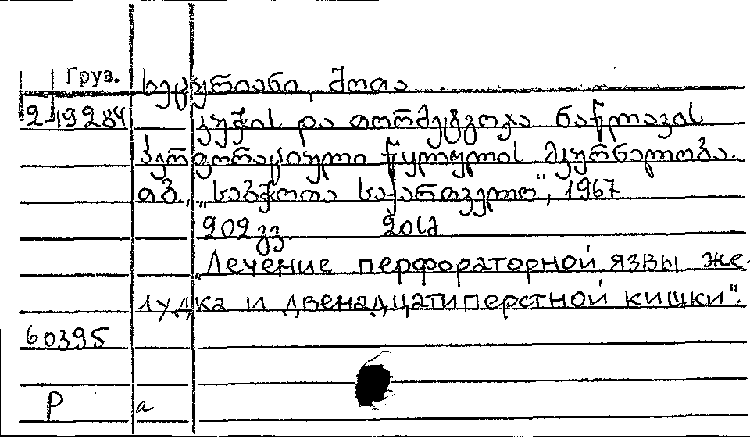 Груз.
ხეცურიანი, შოთა
2-19284
კუჭის და თორმეტგოჯა ნაწლავის
პერფორაციული წყლულის მკურნალობა.
თბ., „საბჭოთა საქართველო", 1967
202 გვ. 20სმ
„Лечение перфораторной язвы же-
лудка и двенадцатиперстной кишки".
60395
Р а